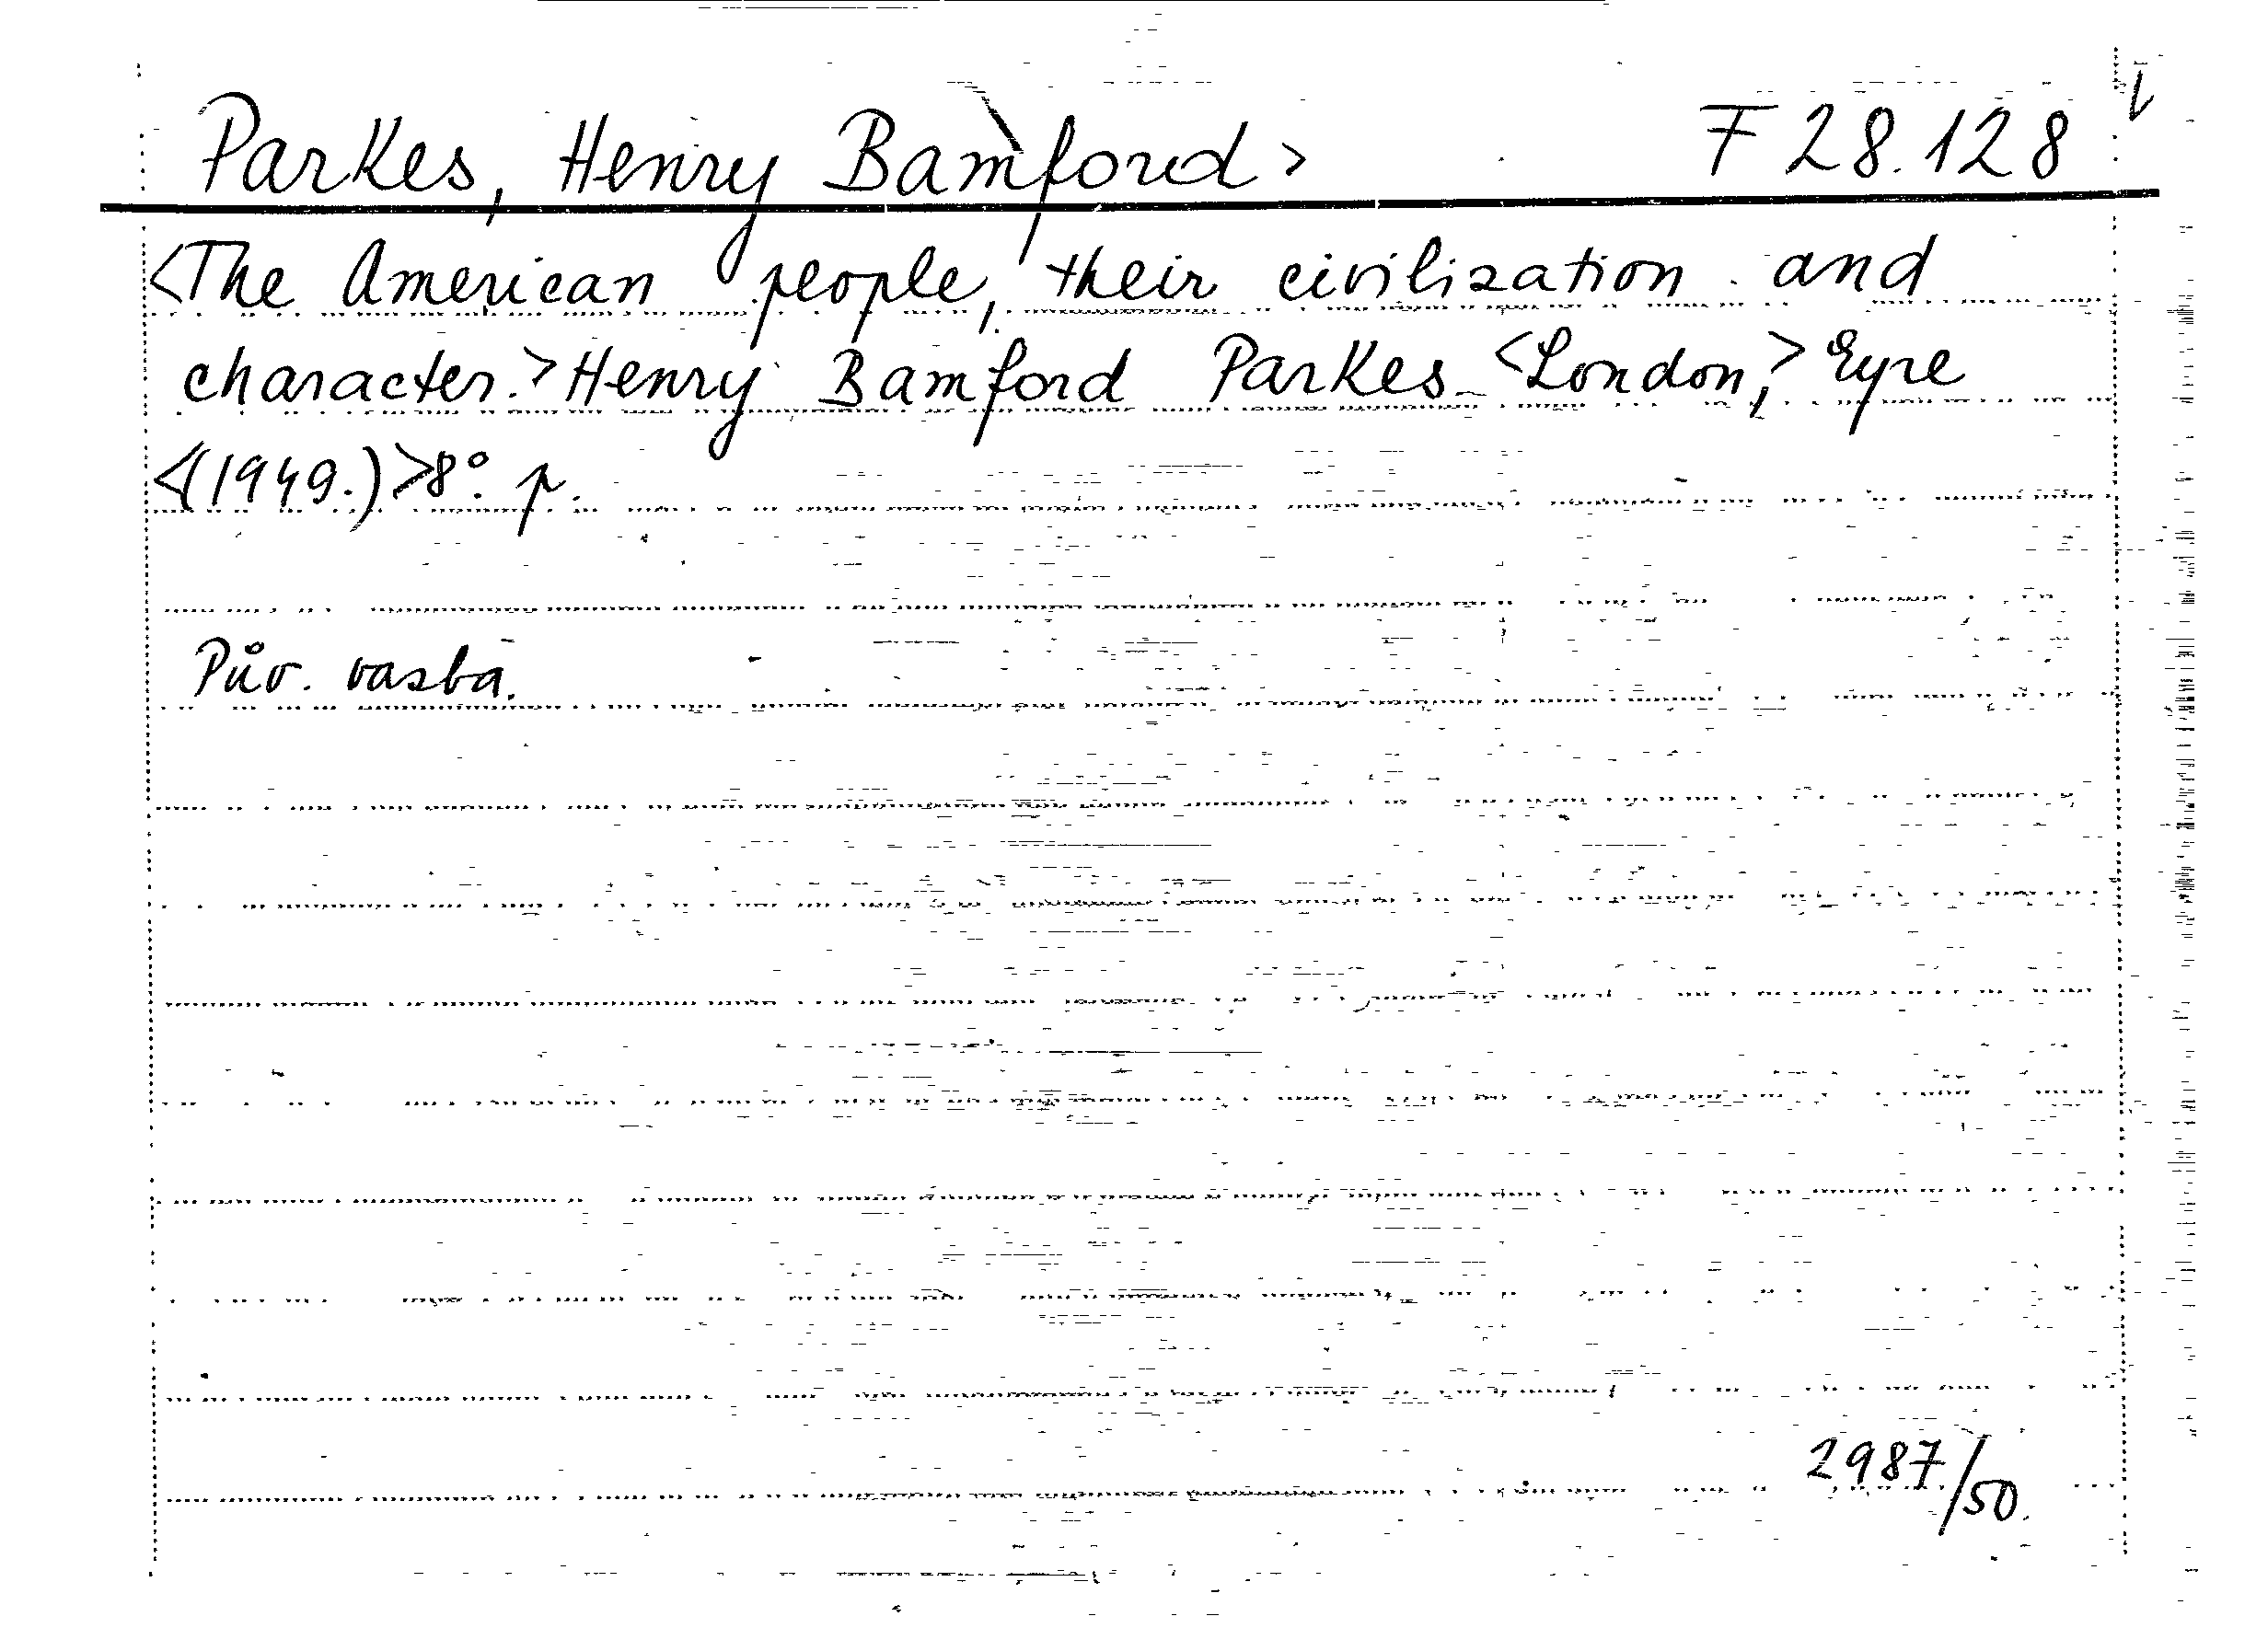 Parkes, Henry Bamford> F 28.128
<The American people, their civilization and
character.> Henry Bamford Parkes <London,> Eyre
<(1949.)> 8°. p.
Pův. vazba.
2987/50.